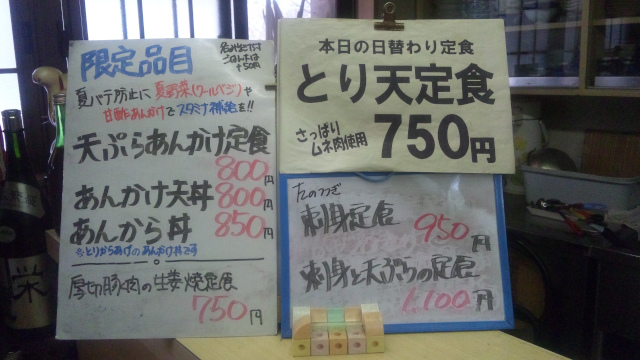 限定品目
夏バテ防止に夏野菜(クールベジ)や
甘酢あんかけでスタミナ補給を!!
天ぷらあんかけ定食
800円
あんかけ天丼 800円
あんから丼 850円
※とりからあげのあんかけ丼です
厚切豚肉の生姜焼定食
750円
本日の日替わり定食
とり天定食
さっぱり
ムネ肉使用
750円
刺身定食 950円
刺身と天ぷらの定食
1,100円